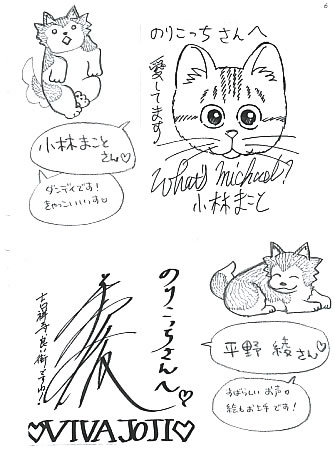 6
のりこっちさんへ
愛してます
What's michael?
小林まこと
小林まこと
さん♡
ダンディです!
きゃっこいいっす♡
のりこっちさんへ♡
吉祥寺良い街ですね!
♡VIVA JOJI♡
平野 綾さん♡
すばらしい お声。
絵もお上手です!